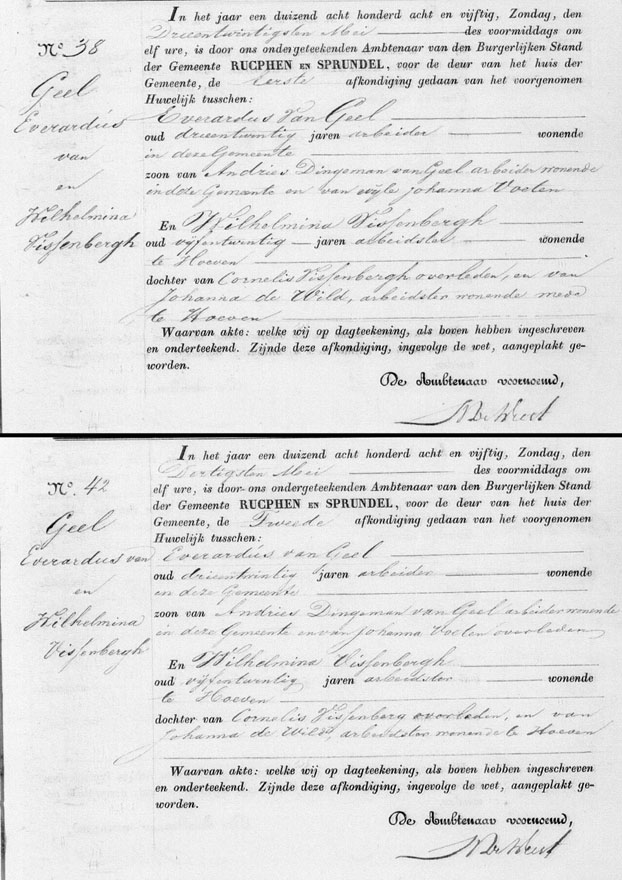 N.º 38
Geel
Everardus
van
en
Wilhelmina
Vissenbergh
In het jaar een duizend acht honderd acht en vijftig, Zondag, den
Drieentwintigsten Mei des voormiddags om
elf ure, is door ons ondergeteekenden Ambtenaar van den Burgerlijken Stand
der Gemeente RUCPHEN EN SPRUNDEL, voor de deur van het huis der
Gemeente, de eerste afkondiging gedaan van het voorgenomen
Huwelijk tusschen:
Everardus Van Geel
oud drieentwintig jaren arbeider wonende
in deze Gemeente
zoon van Andries Dingeman van Geel arbeider wonende
in deze Gemeente en van wijle Johanna Voeten
En Wilhelmina Vissenbergh
oud vijfentwintig jaren arbeidster wonende
te Hoeven
dochter van Cornelis Vissenbergh overleden, en van
Johanna de Wild, arbeidster wonende mede
te Hoeven
Waarvan akte: welke wij op dagteekening, als boven hebben ingeschreven
en onderteekend. Zijnde deze afkondiging, ingevolge de wet, aangeplakt ge-
worden.
De Ambtenaar voornoemd,
N.º 42
Geel
Everardus van
en
Wilhelmina
Vissenbergh
In het jaar een duizend acht honderd acht en vijftig, Zondag, den
Dertigsten Mei des voormiddags om
elf ure, is door ons ondergeteekenden Ambtenaar van den Burgerlijken Stand
der Gemeente RUCPHEN EN SPRUNDEL, voor de deur van het huis der
Gemeente, de Tweede afkondiging gedaan van het voorgenomen
Huwelijk tusschen:
Everardus van Geel
oud drieentwintig jaren arbeider wonende
in deze Gemeente
zoon van Andries Dingeman van Geel arbeider wonende
in deze Gemeente en van Johanna Voeten overleden
En Wilhelmina Vissenbergh
oud vijfentwintig jaren arbeidster wonende
te Hoeven
dochter van Cornelis Vissenberg overleden, en van
Johanna de Wild, arbeidster wonende te Hoeven
Waarvan akte: welke wij op dagteekening, als boven hebben ingeschreven
en onderteekend. Zijnde deze afkondiging, ingevolge de wet, aangeplakt ge-
worden.
De Ambtenaar voornoemd,